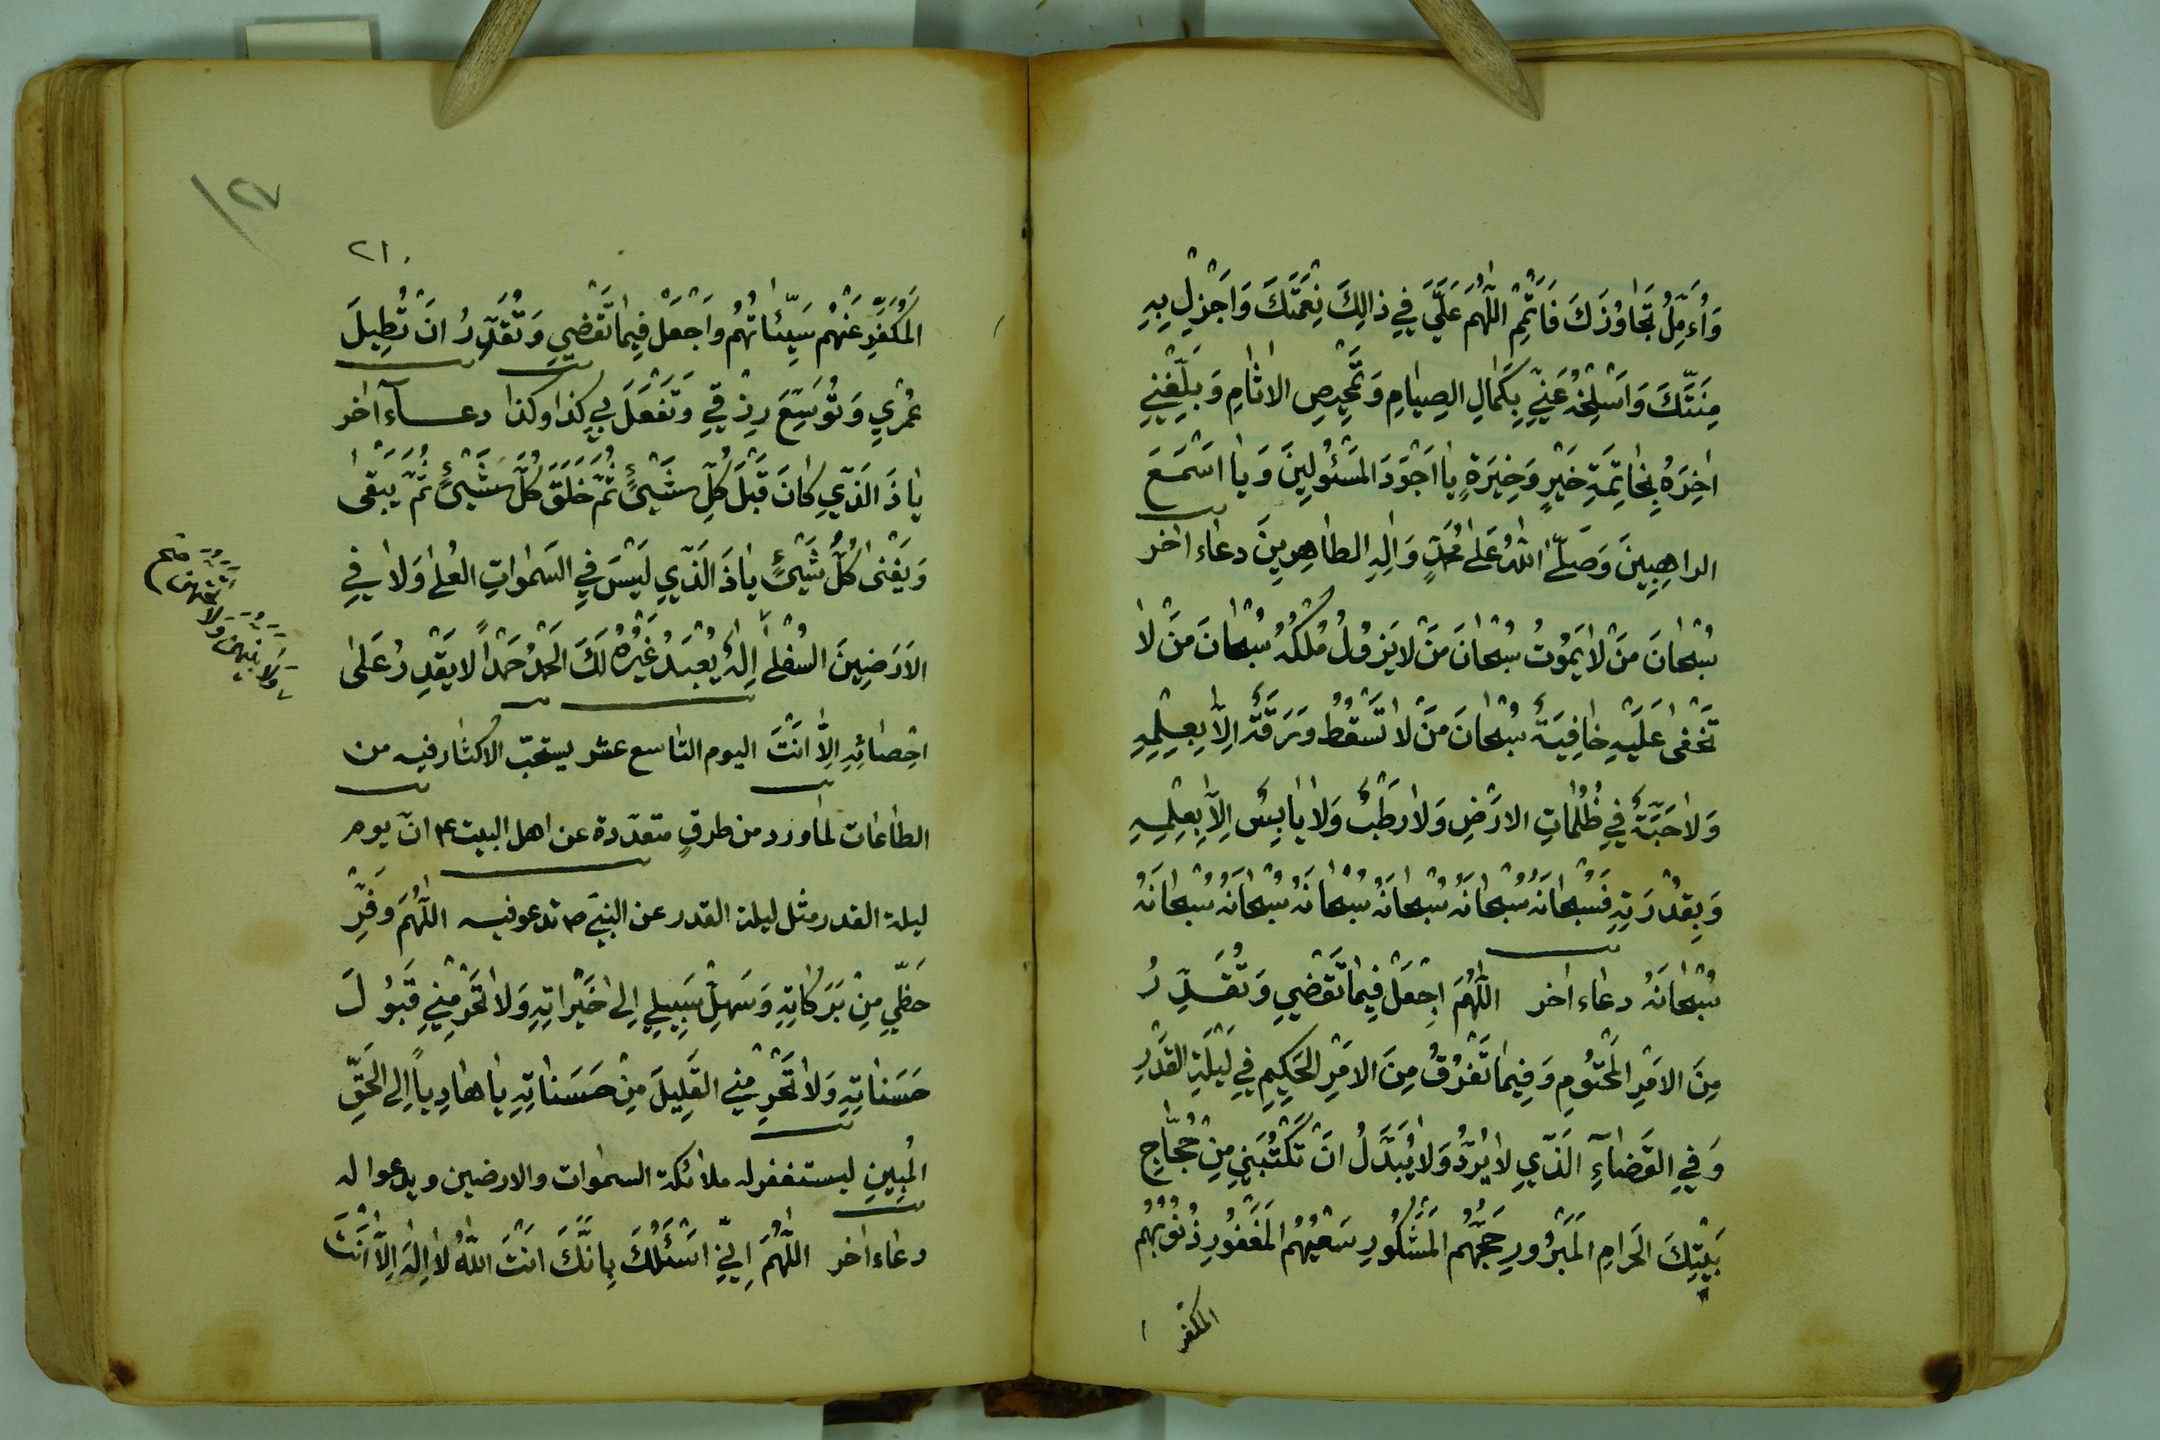 وَاُءَمِّلُ تَجَاوُزَكَ فَاَتْمِمِ اللّٰهُمَّ عَلَيَّ فِي ذالِكَ نِعْمَتَكَ وَاَجْزِلْ بِهِ
مِنَنَّكَ وَاسْلَخْهُ عَنّي بِكَمَالِ الصِيَامِ وَتَمْحِيصِ الاثامِ وَبَلِّغْنِي
اٰخِرَهُ بِخَاتِمَةِ خَيْرٍ وَخِيَرَةٍ يَا اَجْوَدَ المَسْئُولِينَ وَيا اَسْمَعَ
الواهِبِينَ وَصَلّى اللّٰهُ عَلى مُحَمَّدٍ وَالِهِ الطاهِرِينَ دعاء اخر
سُبْحانَ مَنْ لا يَمُوتُ سُبْحانَ مَنْ لا يَزُولُ مُلْكُهُ سُبْحانَ مَنْ لا
تَخْفى عَلَيْهِ خافِيَةٌ سُبْحانَ مَنْ لا تَسْقُطُ وَرَقَةٌ اِلاّ بِعِلْمِهِ
وَلا حَبَّةٌ فِي ظُلُماتِ الارْضِ وَلا رَطْبٌ وَلا يابِسٌ اِلاّ بِعِلْمِهِ
وَبِقُدْرَتِهِ فَسُبْحانَهُ سُبْحانَهُ سُبْحانَهُ سُبْحانَهُ سُبْحانَهُ سُبْحانَهُ
سُبْحانَهُ دعاء اخر اللّٰهُمَّ اجْعَلْ فِيما تَقْضِي وَتُقَدِّرُ
مِنَ الامْرِ المَحْتُومِ وَفِيما تَفْرُقُ مِنَ الامْرِ الحَكِيمِ فِي لَيْلَةِ القَدْرِ
وَفِي القَضاءِ الَّذِي لا يُرَدُّ وَلا يُبَدَّلُ اَنْ تَكْتُبَنِي مِنْ حُجّاجِ
بَيْتِكَ الحَرامِ المَبْرُورِ حَجُّهُم المَشْكُورِ سَعْيُهُم المَغْفُورِ ذُنُوبُهُم
المكفر
٢٧
٢١٠
المُكَفَّرِ عَنْهُم سَيِّئاتُهُم وَاجْعَلْ فِيما تَقْضِي وَتُقَدِّرُ اَنْ تُطِيلَ
عُمْرِي وَتُوَسِّعَ رِزْقِي وَتَفْعَلَ بِي كذا وكذا دعاء اخر
يا ذَا الَّذِي كانَ قَبْلَ كُلِّ شَيْئٍ ثُمَّ خَلَقَ كُلَّ شَيْئٍ ثُمَّ يَبْقى
وَيَفْنى كُلُّ شَيْئٍ يا ذَا الَّذِي لَيْسَ فِي السَمواتِ العُلى وَلا فِي
الاَرَضِينَ السُفْلى اِلهٌ يُعْبَدُ غَيْرُهُ لَكَ الحَمْدُ حَمْداً لا يَقْدِرُ عَلى
اِحْصائِهِ اِلاّ اَنْتَ اليوم التاسع عشر يستحبّ الاكثار فيه من
الطاعات لما ورد من طرقٍ متعدّدة عن اهل البيت ع انّ يوم
ليلة القدر مثل ليلة القدر عن النبيّ ص تدعو فيه اللّٰهُمَّ وَفِّرْ
حَظِّي مِنْ بَرَكاتِهِ وَسَهِّلْ سَبِيلِي اِلى خَيْراتِهِ وَلا تَحْرِمْنِي قَبُولَ
حَسَناتِهِ وَلا تَحْرِمْنِي القَلِيلَ مِنْ حَسَناتِهِ يا هادِياً اِلى الحَقِّ
المُبِينِ ليستغفر له ملائكة السموات والارضين ويدعوا له
دعاء اخر اللّٰهُمَّ اِنّي اَسْئَلُكَ بِاَنَّكَ اَنْتَ اللّٰهُ لا اِلهَ اِلاّ اَنْتَ
وَلا بَيْنَهُنَّ وَلا تَحْتَهُنَّ صح